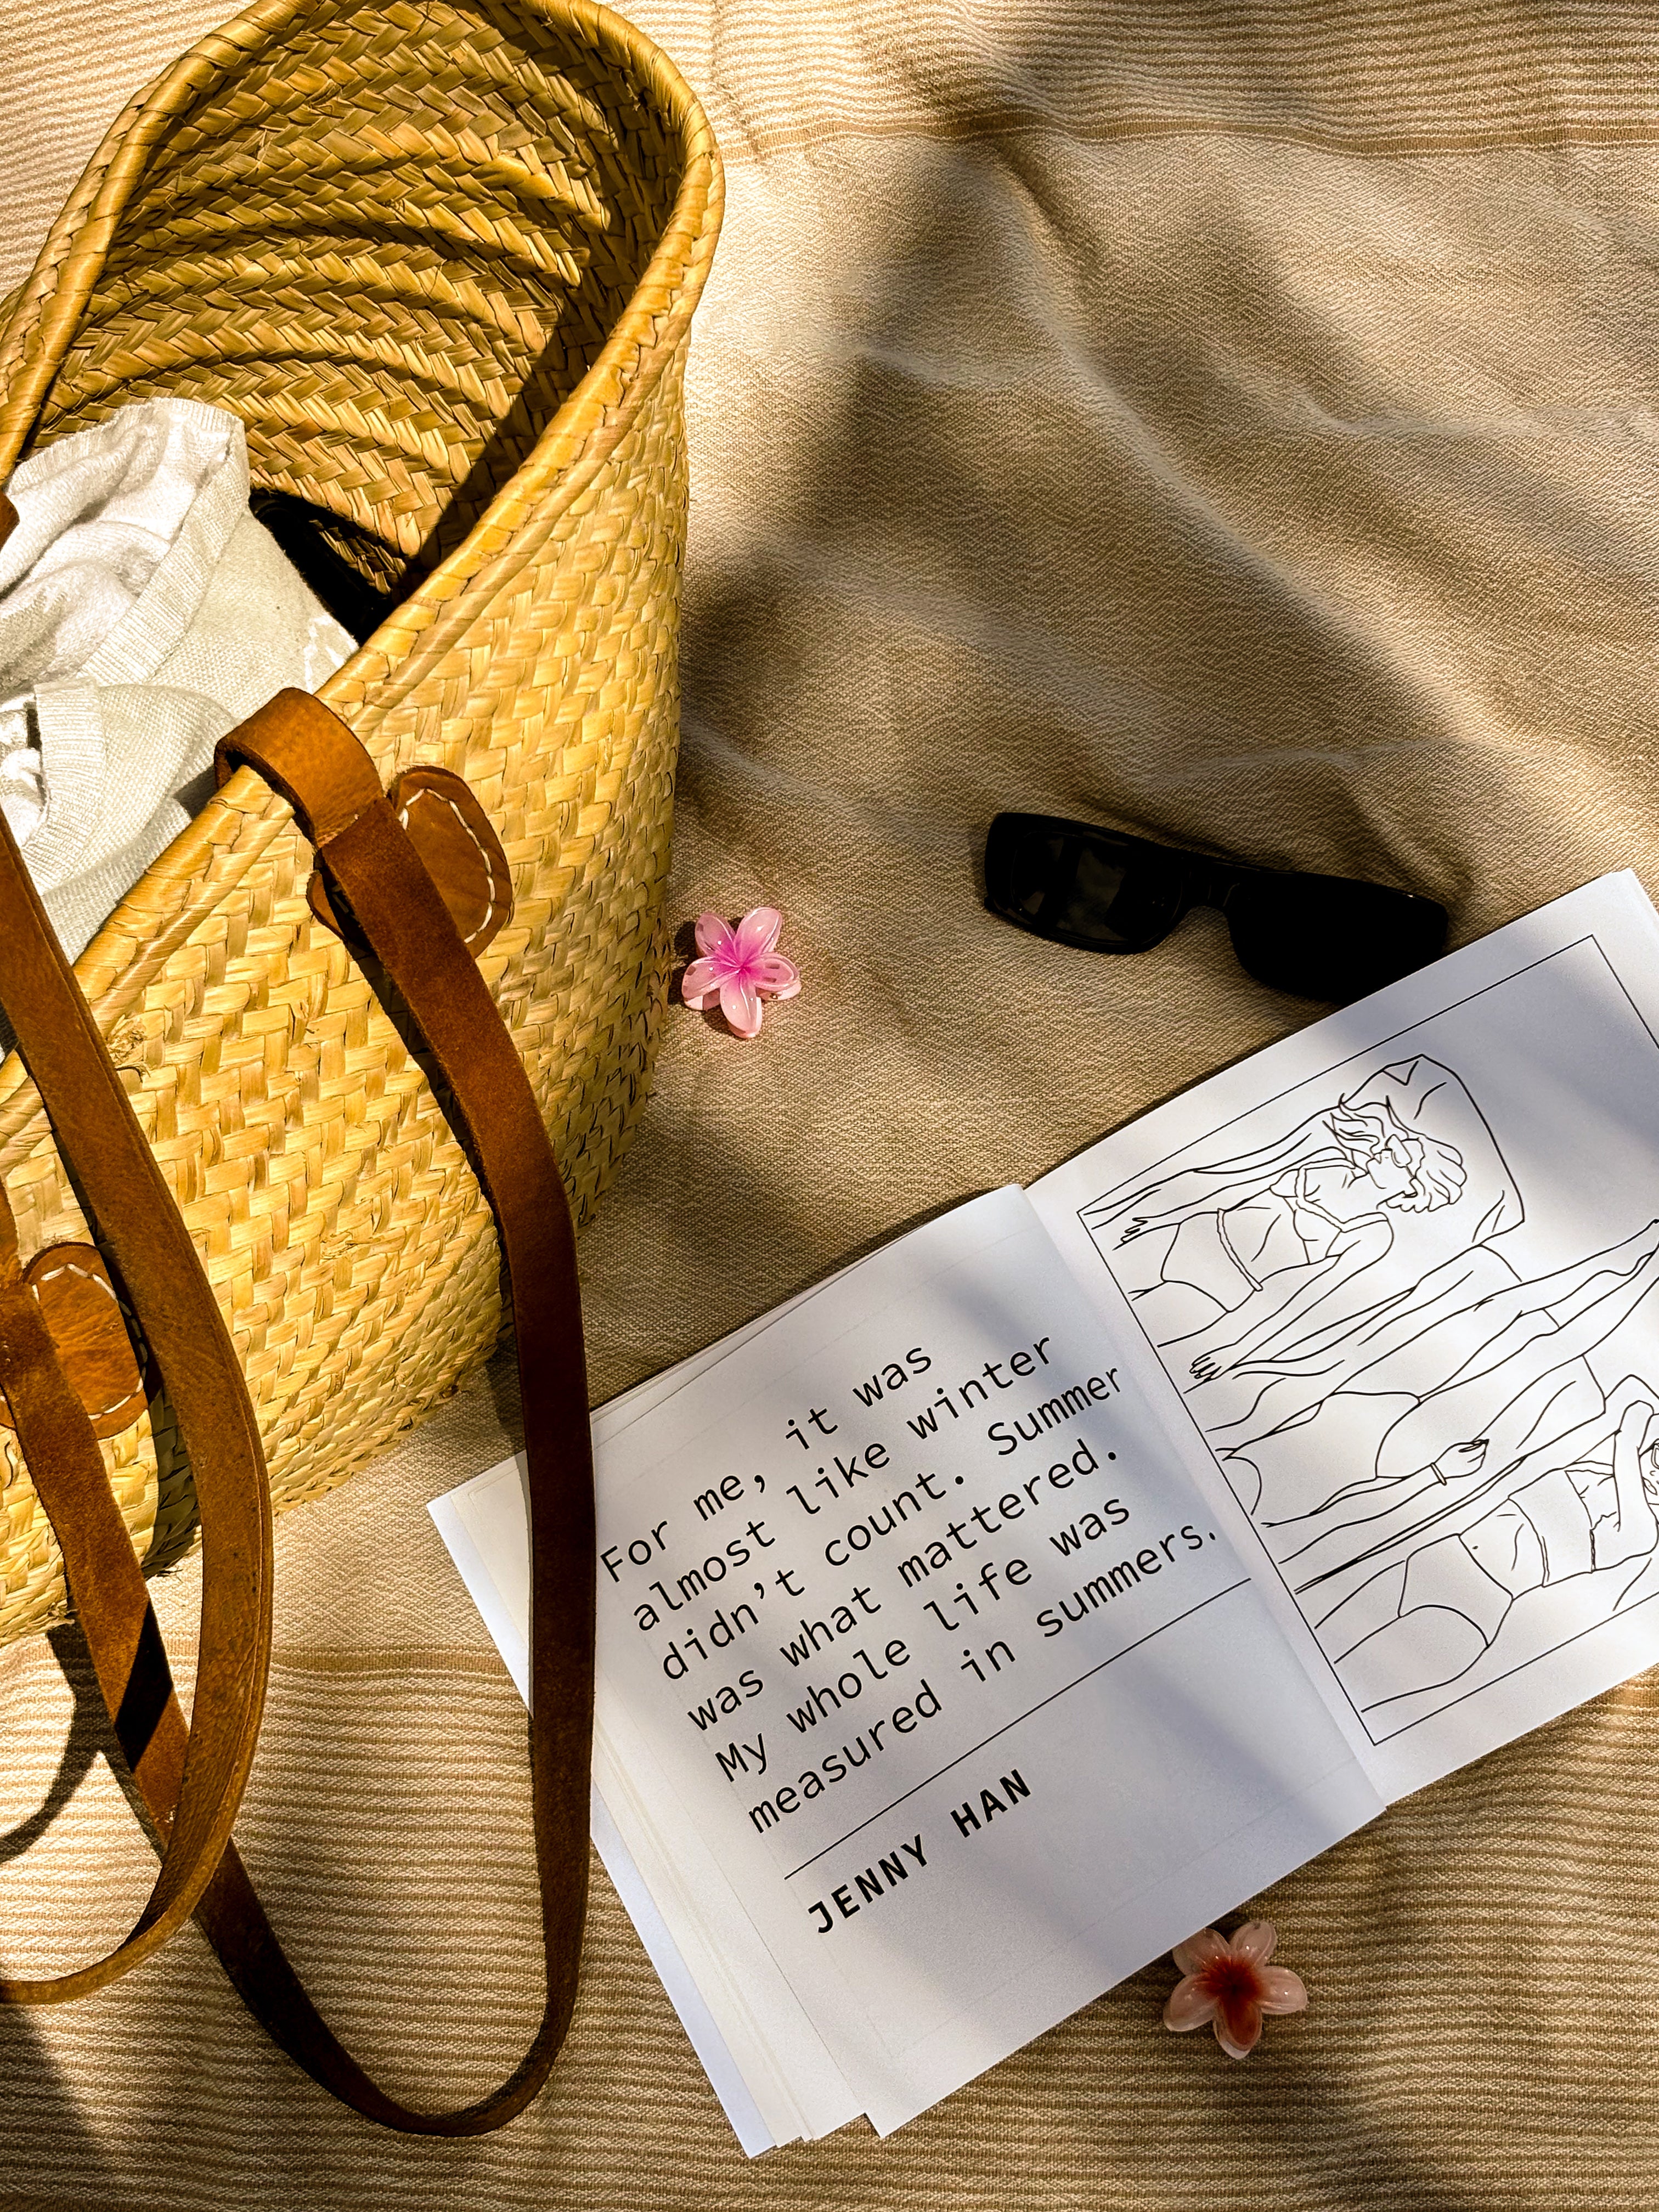 For me, it was
almost like winter
didn't count. Summer
was what mattered.
My whole life was
measured in summers.
JENNY HAN